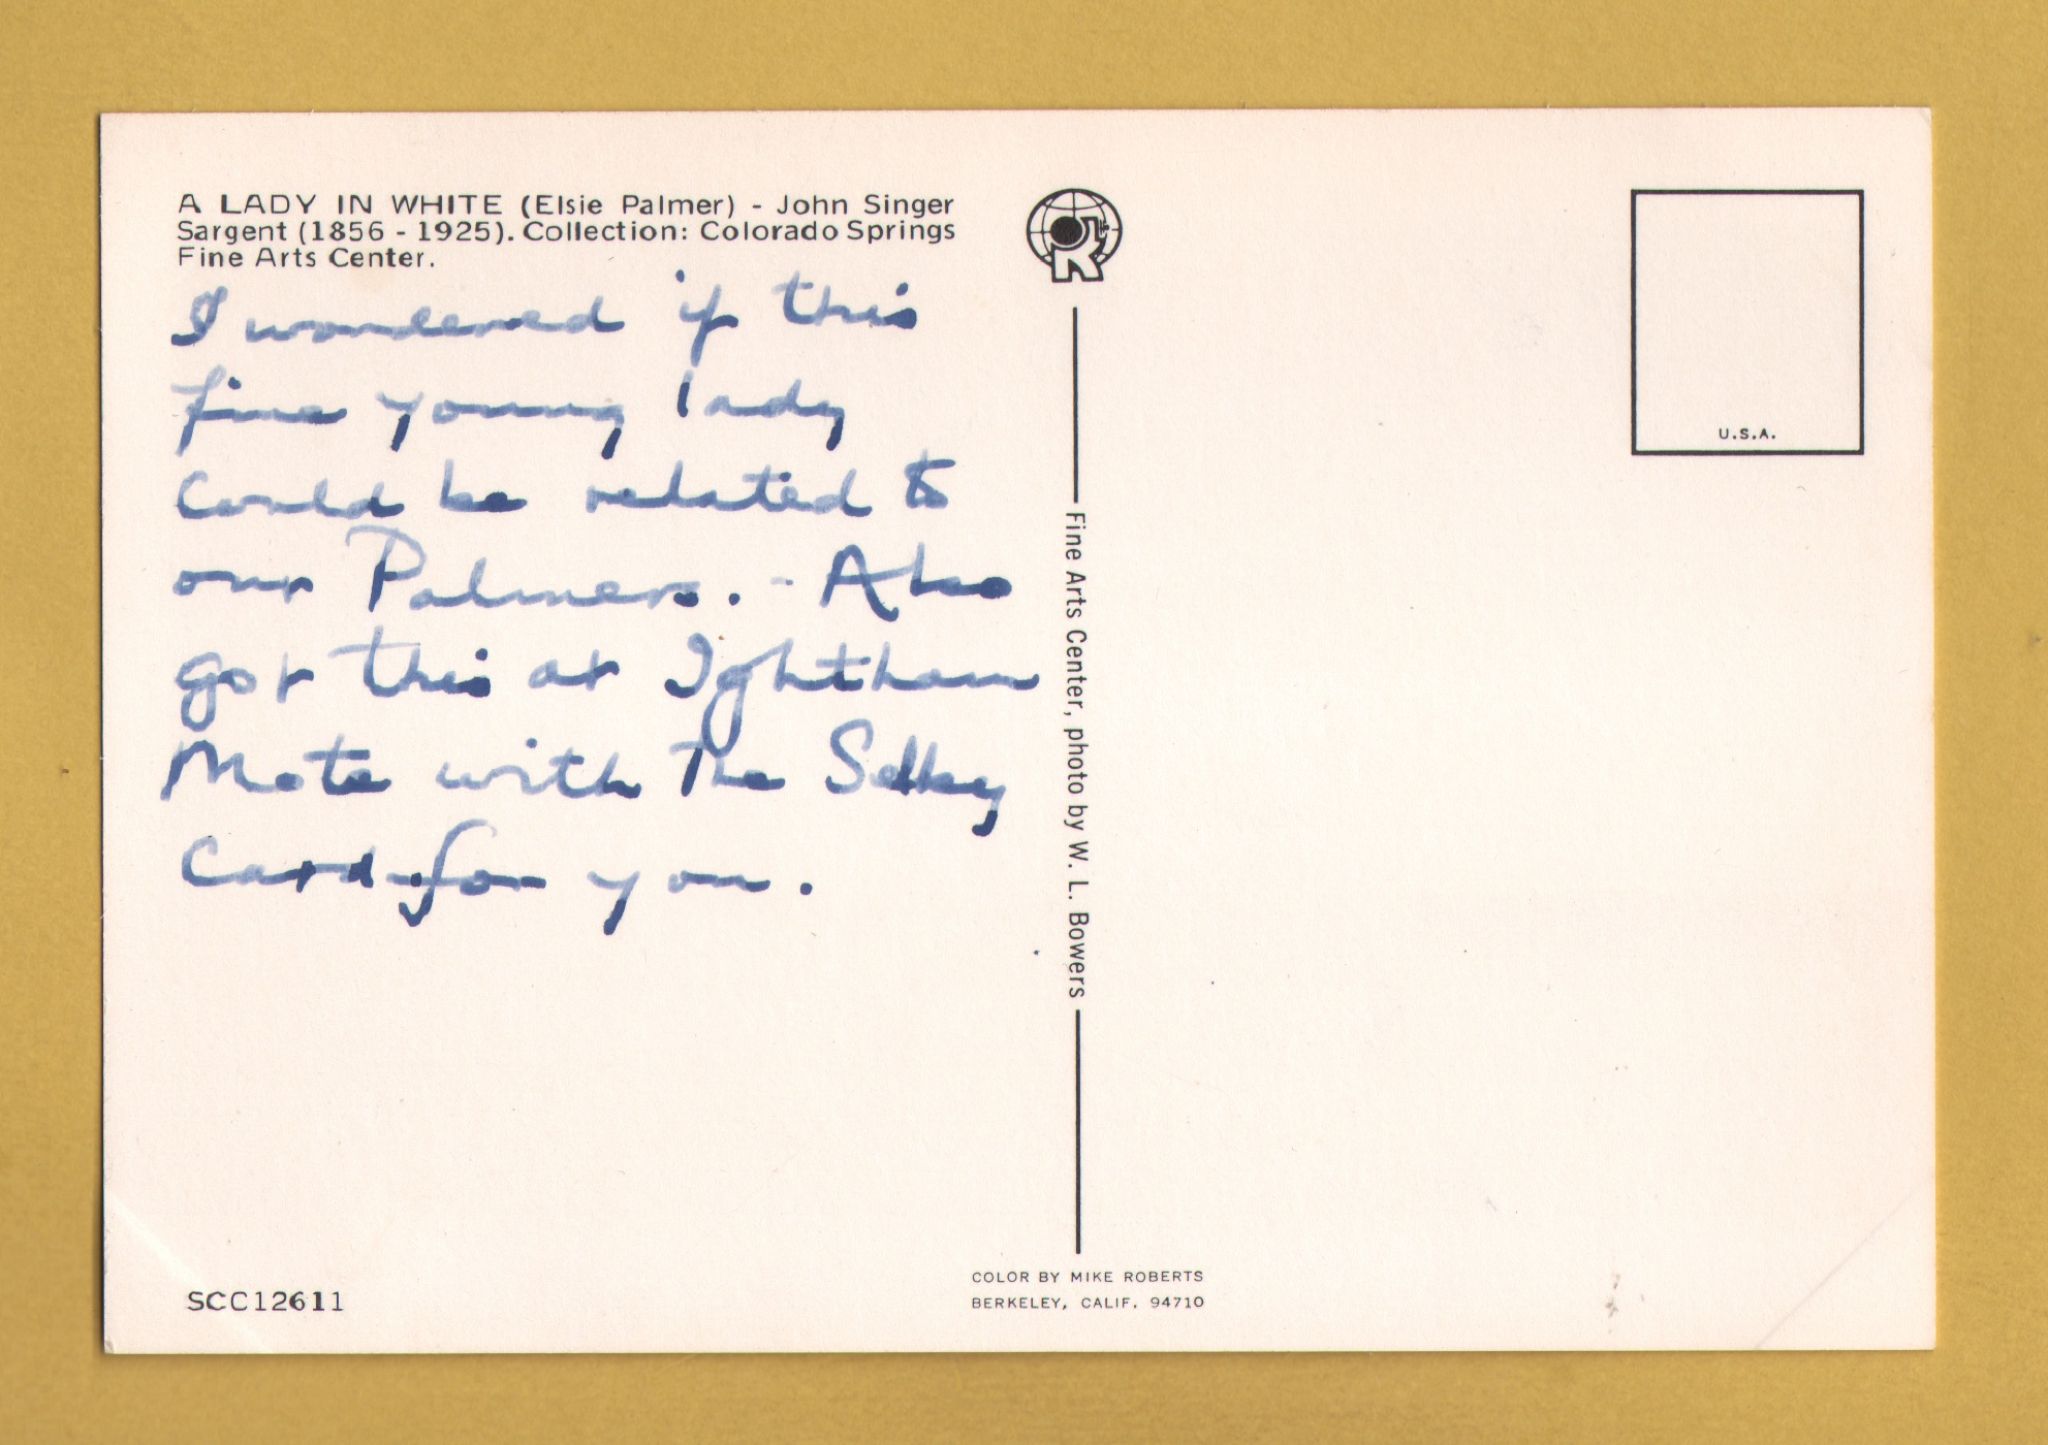 A LADY IN WHITE (Elsie Palmer) - John Singer
Sargent (1856 - 1925). Collection: Colorado Springs
Fine Arts Center.
I wondered if this
fine young lady
could be related to
our Palmers. - Also
got this at Ightham
Mote with the Selkey
Card for you.
Fine Arts Center, photo by W. L. Bowers
U.S.A.
SCC12611
COLOR BY MIKE ROBERTS
BERKELEY, CALIF. 94710